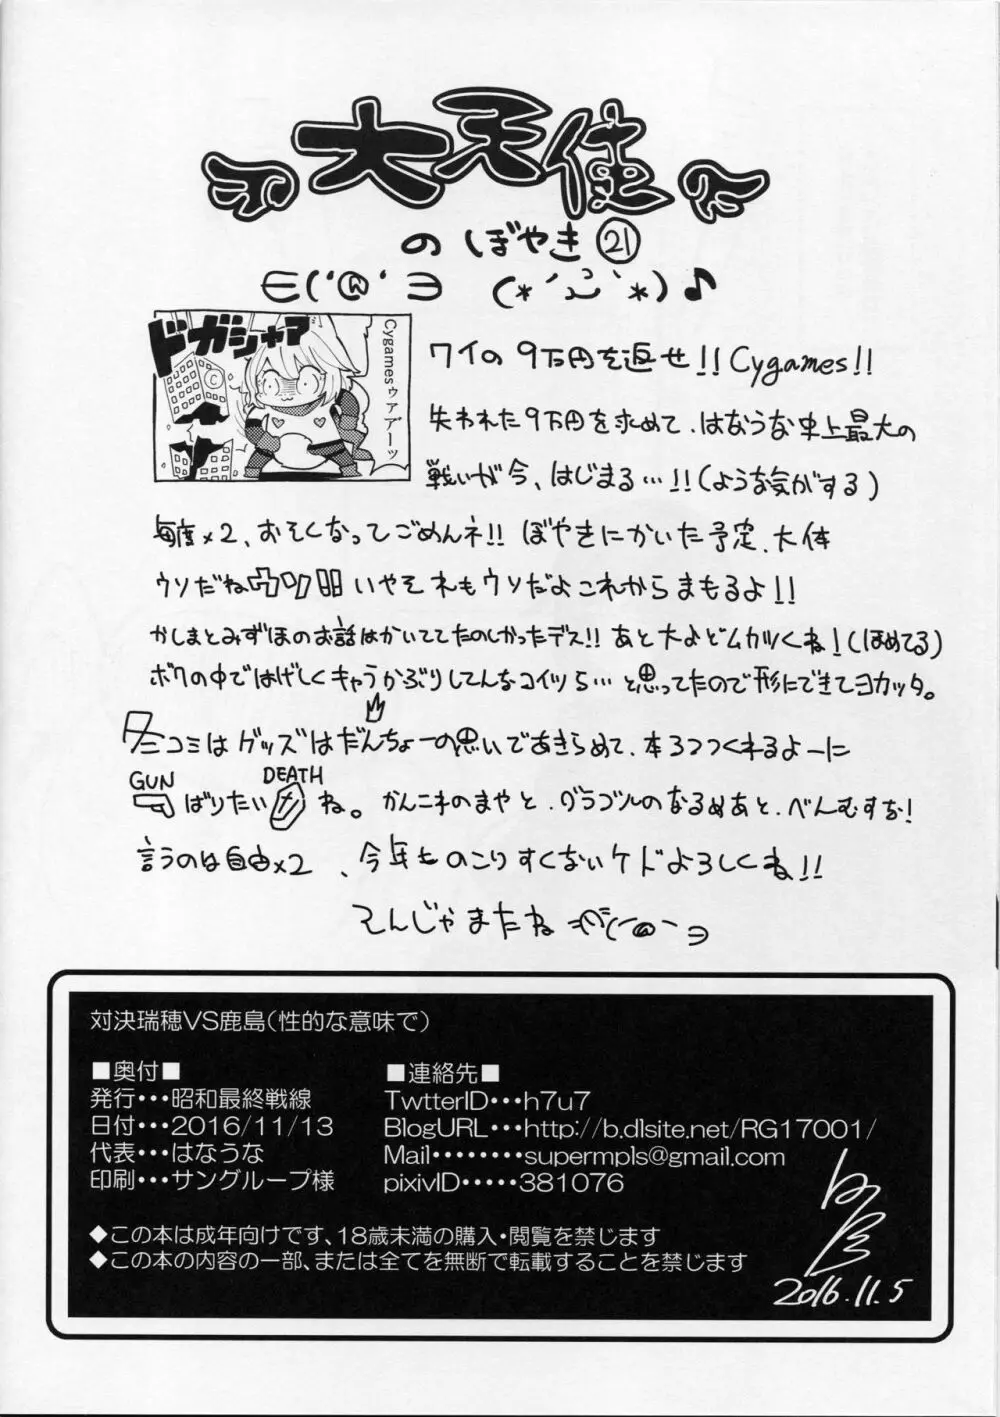 大天使
のぼやき㉑
∈('@'∋ (*´ω`*)♪
ドガシャア
Cygamesゥアア゛ーッ
C
ワイの9万円を返せ!!Cygames!!
失われた9万円を求めて、はなうな史上最大の
戦いが今、はじまる…!!(ような気がする)
毎度×2、おそくなってごめんネ!! ぼやきにかいた予定、大体
ウソだねウソ!!いやそれもウソだよこれからまもるよ!!
かしまとみずほのお話はかいててたのしかったデス!! あと大よどムカツくね!(ほめてる)
ボクの中ではげしくキャラかぶりしてんなコイツら…と思ってたので形にできてヨカッタ。
冬コミはグッズはだんちょーの思いであきらめて、本3つつくれるよーに
GUN DEATH
ばりたいね。かんこれのまやと、グラブルのなるめあと、べんむすな!
言うのは自由×2、今年ものこりすくないケドよろしくね!!
そんじゃまたね
対決瑞穂VS鹿島(性的な意味で)
■奥付■
発行・・・昭和最終戦線
日付・・・2016/11/13
代表・・・はなうな
印刷・・・サングループ様
■連絡先■
TwtterID・・・h7u7
BlogURL・・・http://b.dlsite.net/RG17001/
Mail・・・・・・・・supermpls@gmail.com
pixivID・・・・・381076
◆この本は成年向けです、18歳未満の購入・閲覧を禁じます
◆この本の内容の一部、または全てを無断で転載することを禁じます
2016.11.5